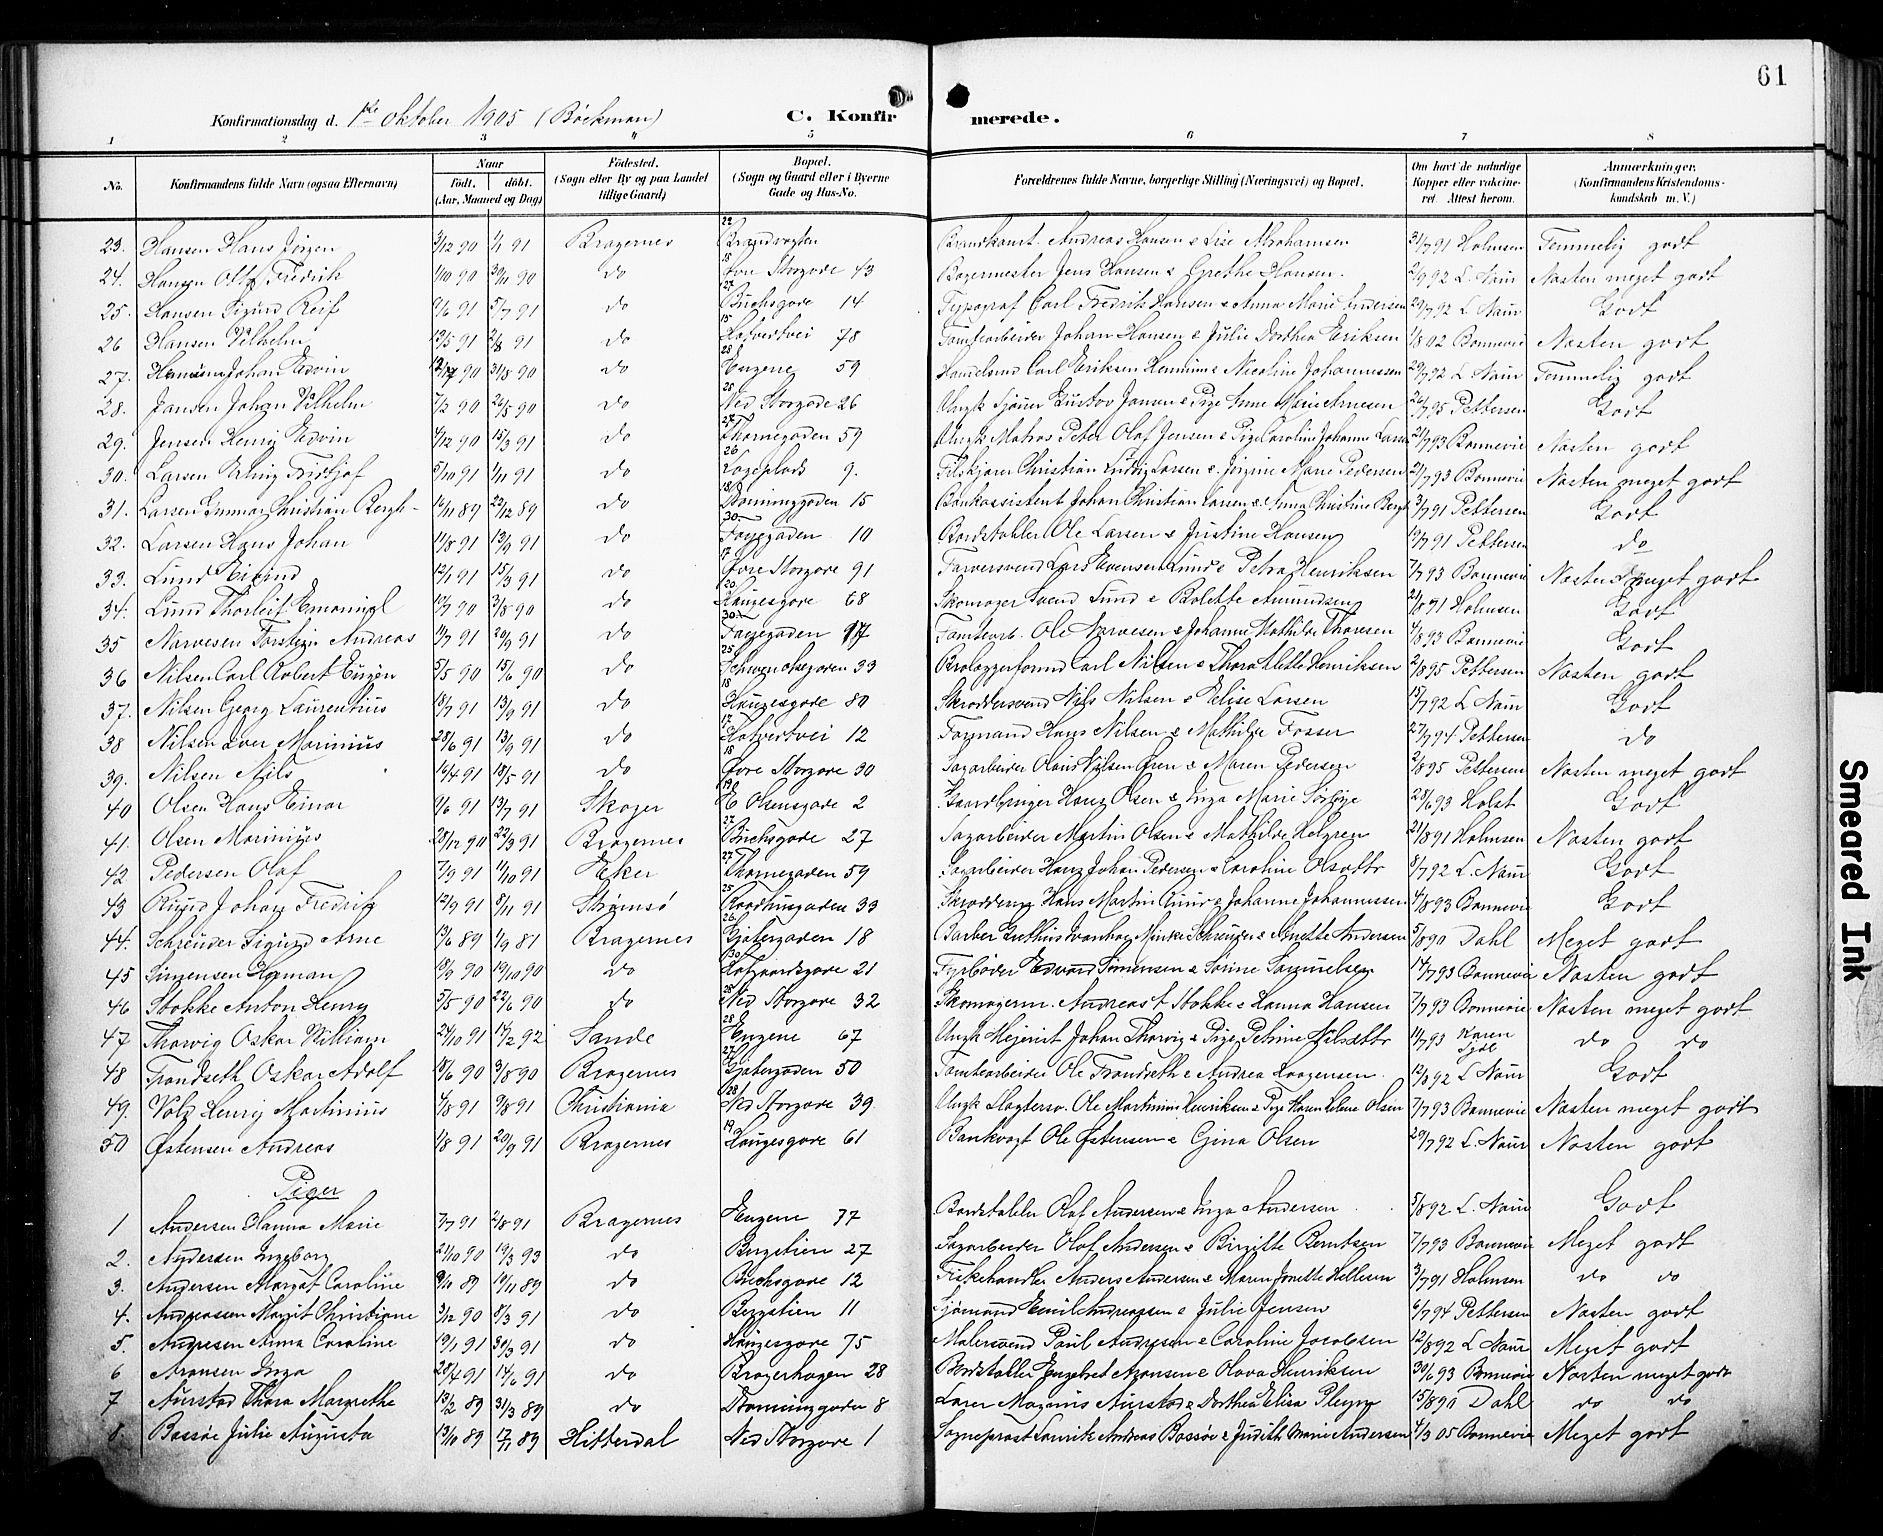 61
Konfirmationsdag d. 1ste Oktober 1905 (Böckman) C. Konfirmerede.
1 2 3 4 5 6 7 8
No. Konfirmandens fulde Navn (ogsaa Efternavn) Naar født. døbt. (Aar, Maaned og Dag) Fødested. (Sogn eller By og paa Landet tillige Gaard) Bopæl. (Sogn og Gaard eller i Byerne Gade og Hus-No. Forældrenes fulde Navne, borgerlige Stilling (Næringsvei) og Bopæl. Om havt de naturlige Kopper eller vakcineret. Attest herom. Anmærkninger. (Konfirmandens Kristendomskundskab m. V.)
23. Hansen Hans Jörgen 3/12 90 1/1 91 Bragernes 22 Brandvagten Andreas Hansen & Lise Abrahamsen 31/7 91 Holmsen Temmelig godt
24. Hansen Fredrik 1/10 90 30/11 90 do 18 Øvre Storgade 43 Bagermester Jens Hansen & Grethe Hansen. 2/9 92 L. Naur Næsten meget godt
25. Hansen Sigurd 9/6 91 5/7 91 do 27 Buchsgade 14 Typograf Carl Fredrik Hansen & Anna Marie Andersen 29/7 92 L Naur Godt
26 Hansen Vilhelm 19/5 91 2/8 91 do 15 Hotvedtvei 78 Tomtearbeider Johan Hansen & Julie Dorthea Eriksen 1/8 02 Bonnevie Næsten godt
27. Johan Edvin 90 31/8 90 do 28 Engene 59 Carl Eriksen & Nicoline Johannessen 29/7 92 L. Naur Temmelig godt
28. Jansen Johan Vilhelm 7/2 90 26/5 90 do 28 Ned Storgade 26 Ungk Sjömr Gustav Jansen & Pige Anne Marie Arnesen 26/7 95 Pettersen Godt
29. Jensen Henry Edvin 4/12 90 15/3 91 do 27 Thornegaden 59 Ungk Matros Peter Olaf Jensen & Pige Caroline Johanne Larsen 21/7 93 Bonnevie Næsten godt
30. Larsen Erling Fridtjof 5/10 91 1/11 91 do 26 Logeplads 9. Christian Ludvig Larsen & Jörgine Marie Pedersen 21/7 93 Bonnevie Næsten meget godt
31. Larsen Gunnar Christian Bergh 16/11 89 22/12 89 do 18 Dronninggaden 15 Bankassistent Johan Christian Larsen & Anna Christine Bergh 3/7 91 Pettersen Godt
32. Larsen Hans Johan 11/8 91 13/9 91 do 30 Faygegaden 10 Bordstabler Ole Larsen & Justine Hansen 19/7 91 Pettersen do
33. Lund Eivind 12/1 91 15/3 91 do 17 Øvre Storgade 91 Farversvend Lars Evensen Lund & Petra Henriksen 7/7 93 Bonnevie Næsten meget godt
34. Lund Thorleif Emanuel 13/7 90 3/8 90 do 20 Haugesgade 68 Skomager Svend Lund & Bolette Amundsen 21/8 91 Holmsen Godt
35 Narvesen Torsten Andreas 11/7 91 20/9 91 do 30 17 Tomtearb. Ole Narvesen & Johanne Mathilde Thoresen 4/8 93 Bonnevie Godt
36 Nilsen Carl Robert Eugen 5/5 90 15/6 90 do 25 Schwenckegaden 33 Brolæggerformd Carl Nilsen & Thora Mette Henriksen 2/8 95 Pettersen Næsten godt
37. Nilsen Georg Laurentius 18/7 91 13/9 91 do 18 Haugesgade 80 Skræddersvend Nils Nilsen & Elise Larsen 15/7 92 L Naur Godt
38 Nilsen Iver Marinius 28/6 91 13/9 91 do 17 Hotvedtvei 12 Formand Hans Nilsen & Mathilde Fosser 27/7 94 Pettersen do
39. Nilsen Nils 14/4 91 18/5 91 do 18 Øvre Storgade 30 Sagarbeider Olaus Nilsen & Maren Pedersen 2/8 95 Pettersen Næsten meget godt
40 Olsen Hans Einar 9/6 91 13/7 91 Skoger 19 E Olsensgade 2 Gaardbruger Hans Olsen & Inga Marie 28/6 93 Holst Godt
41. Olsen Marinius 28/12 90 22/3 91 Bragernes 27 Buchsgade 27 Sagarbeider Martin Olsen & Mathilde Helgren 21/8 91 Holmsen Næsten godt
42 Pedersen Olaf 7/9 91 11/10 91 Eker 27 Thornegaden 59 Sagarbeider Hans Johan Pedersen & Caroline Olsdttr 8/7 92 L. Naur Godt
43 Ruud Johan Fredrik 12/9 91 8/11 91 Strømsö 25 Raadhusgaden 33 Hans Martin Ruud & Johanne Johannessen 4/8 93 Bonnevie Godt
44. Schreuder Sigurd Arne 13/6 89 1/9 81 Bragernes 26 Gjetergaden 18 Barber & Anette Andersen 5/8 90 Dahl Meget godt
45 Simensen Herman 18/9 90 19/10 90 do 30 21 Fyrbøder Edvard Simensen & Sörine Samuelsen 14/7 93 Bonnevie Næsten godt
46 Stokke Anton Henry 5/5 90 22/6 90 do 28 Ned Storgade 32 Skomagerm. Andreas Stokke & Hanna Hansen 7/7 93 Bonnevie Næsten meget godt
47 Thorvig Oskar William 24/10 91 14/2 92 Sande 28 Engene 67 Ungk Johan Thorvig & Pige Petrine Nilsdttr 14/7 93 Karen do do
48 Trondseth Oskar Adolf 18/6 90 3/8 90 Bragernes 27 Gjetergaden 50 Tomtearbeider Ole Trondseth & Andrea Laagensen 12/8 92 L Naur Godt
49. Volz Henry Martinius 4/8 91 9/8 91 Christiania 28 Ned Storgade 39 Ungk Slagtersv. Ole Martinius Henriksen & Pige Karen Helene Olsen 7/7 93 Bonnevie Næsten meget godt
50 Østensen Andreas 1/8 91 20/9 91 Bragernes 19 Haugesgade 61 Bankvagt Ole Østensen & Gina Olsen 29/7 92 L. Naur Næsten godt
Piger
1 Andersen Hanna Marie 7/7 91 2/8 91 Bragernes Engene 77 Bordstabler Olaf Andersen & Inga Andersen 5/8 92 L. Naur Godt
2. Andersen Ingeborg 21/10 90 19/3 93 do Bergstien 27 Sagarbeider Olaf Andersen & Birgitte Berntsen 7/7 93 Bonnevie Meget godt
3. Andersen Margot Caroline 9/10 89 10/11 89 do Buchsgade 12 Fiskehandler Anders Andersen & Maren Jonette Hellesen 3/7 91 Holmsen do do
4. Andreassen Margit Christiane 3/12 90 8/3 91 do Bergstien 11 Sjömand Emil Andreassen & Julie Jensen 6/7 94 Pettersen Næsten godt
5. Andresen Anna Caroline 19/1 91 30/3 91 do Haugesgade 75 Malersvend Paul Andresen & Caroline Jacobsen 12/8 92 L Naur Meget godt
6 Aronsen Inga 20/4 91 14/6 91 do Bragerhagen 28 Bordstabler Engebret Aronsen & Olava Henriksen 30/6 93 Bonnevie Næsten meget godt
7 Aurstad Thora Margrethe 13/2 89 31/3 89 do Dronninggaden 8 Lærer Magnus Aurstad & Dorthea Elisa 15/8 90 Dahl do do
8. Bassøe Julie Augusta 13/10 89 17/11 89 Hitterdal Ned Storgade 1 Sogneprest Laurits Andreas Bassøe & Judith Marie Andersen 4/3 05 Bonnevie Meget godt
Smeared Ink